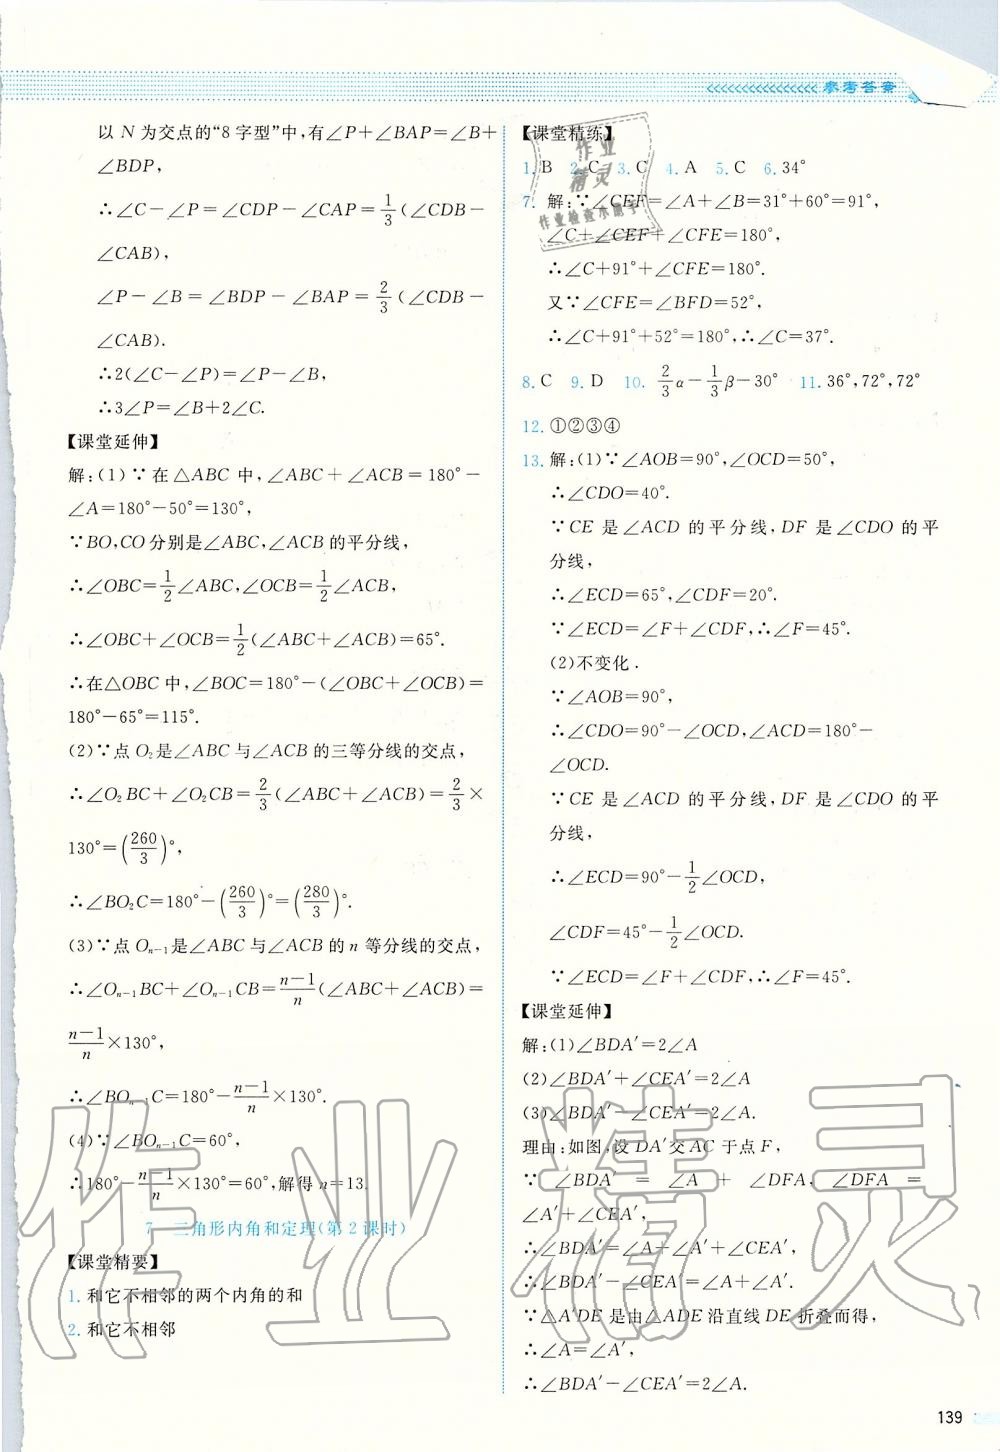 参考答案
以 N 为交点的“8 字型”中,有∠P+∠BAP=∠B+
∠BDP,
∴∠C-∠P=∠CDP-∠CAP=1/3(∠CDB-
∠CAB),
∠P-∠B=∠BDP-∠BAP=2/3(∠CDB-
∠CAB).
∴2(∠C-∠P)=∠P-∠B,
∴3∠P=∠B+2∠C.
【课堂延伸】
解:(1)∵在△ABC 中,∠ABC+∠ACB=180°-
∠A=180°-50°=130°,
∵BO,CO分别是∠ABC,∠ACB的平分线,
∴∠OBC=1/2∠ABC,∠OCB=1/2∠ACB,
∴∠OBC+∠OCB=1/2(∠ABC+∠ACB)=65°.
∴在△OBC中,∠BOC=180°-(∠OBC+∠OCB)=
180°-65°=115°.
(2)∵点 O₂是∠ABC与∠ACB的三等分线的交点,
∴∠O₂BC+∠O₂CB=2/3(∠ABC+∠ACB)=2/3×
130°=(260/3)°,
∴∠BO₂C=180°-(260/3)°=(280/3)°.
(3)∵点 Oₙ₋₁是∠ABC与∠ACB的 n 等分线的交点,
∴∠Oₙ₋₁BC+∠Oₙ₋₁CB=(n-1)/n(∠ABC+∠ACB)=
(n-1)/n×130°,
∴∠BOₙ₋₁C=180°-(n-1)/n×130°.
(4)∵∠BOₙ₋₁C=60°,
∴180°-(n-1)/n×130°=60°,解得 n=13.
7 三角形内角和定理(第2课时)
【课堂精要】
1. 和它不相邻的两个内角的和
2. 和它不相邻
【课堂精练】
1. B 2. C 3. C 4. A 5. C 6. 34°
7. 解:∵∠CEF=∠A+∠B=31°+60°=91°,
∠C+∠CEF+∠CFE=180°,
∴∠C+91°+∠CFE=180°.
又∵∠CFE=∠BFD=52°,
∴∠C+91°+52°=180°,∴∠C=37°.
8. C 9. D 10. 2/3α-1/3β-30° 11. 36°,72°,72°
12. ①②③④
13. 解:(1)∵∠AOB=90°,∠OCD=50°,
∴∠CDO=40°.
∵CE 是∠ACD 的平分线,DF 是∠CDO 的平
分线,
∴∠ECD=65°,∠CDF=20°.
∵∠ECD=∠F+∠CDF,∴∠F=45°.
(2)不变化.
∵∠AOB=90°,
∴∠CDO=90°-∠OCD,∠ACD=180°-
∠OCD.
∵CE 是∠ACD 的平分线,DF 是∠CDO 的平
分线,
∴∠ECD=90°-1/2∠OCD,
∠CDF=45°-1/2∠OCD.
∵∠ECD=∠F+∠CDF,∴∠F=45°.
【课堂延伸】
解:(1)∠BDA′=2∠A
(2)∠BDA′+∠CEA′=2∠A
(3)∠BDA′-∠CEA′=2∠A.
理由:如图,设 DA′交 AC 于点 F,
∵∠BDA′=∠A+∠DFA,∠DFA=
∠A′+∠CEA′,
∴∠BDA′=∠A+∠A′+∠CEA′,
∴∠BDA′-∠CEA′=∠A+∠A′.
∵△A′DE 是由△ADE 沿直线 DE 折叠而得,
∴∠A=∠A′,
∴∠BDA′-∠CEA′=2∠A.
139
作业精灵
作业
精灵